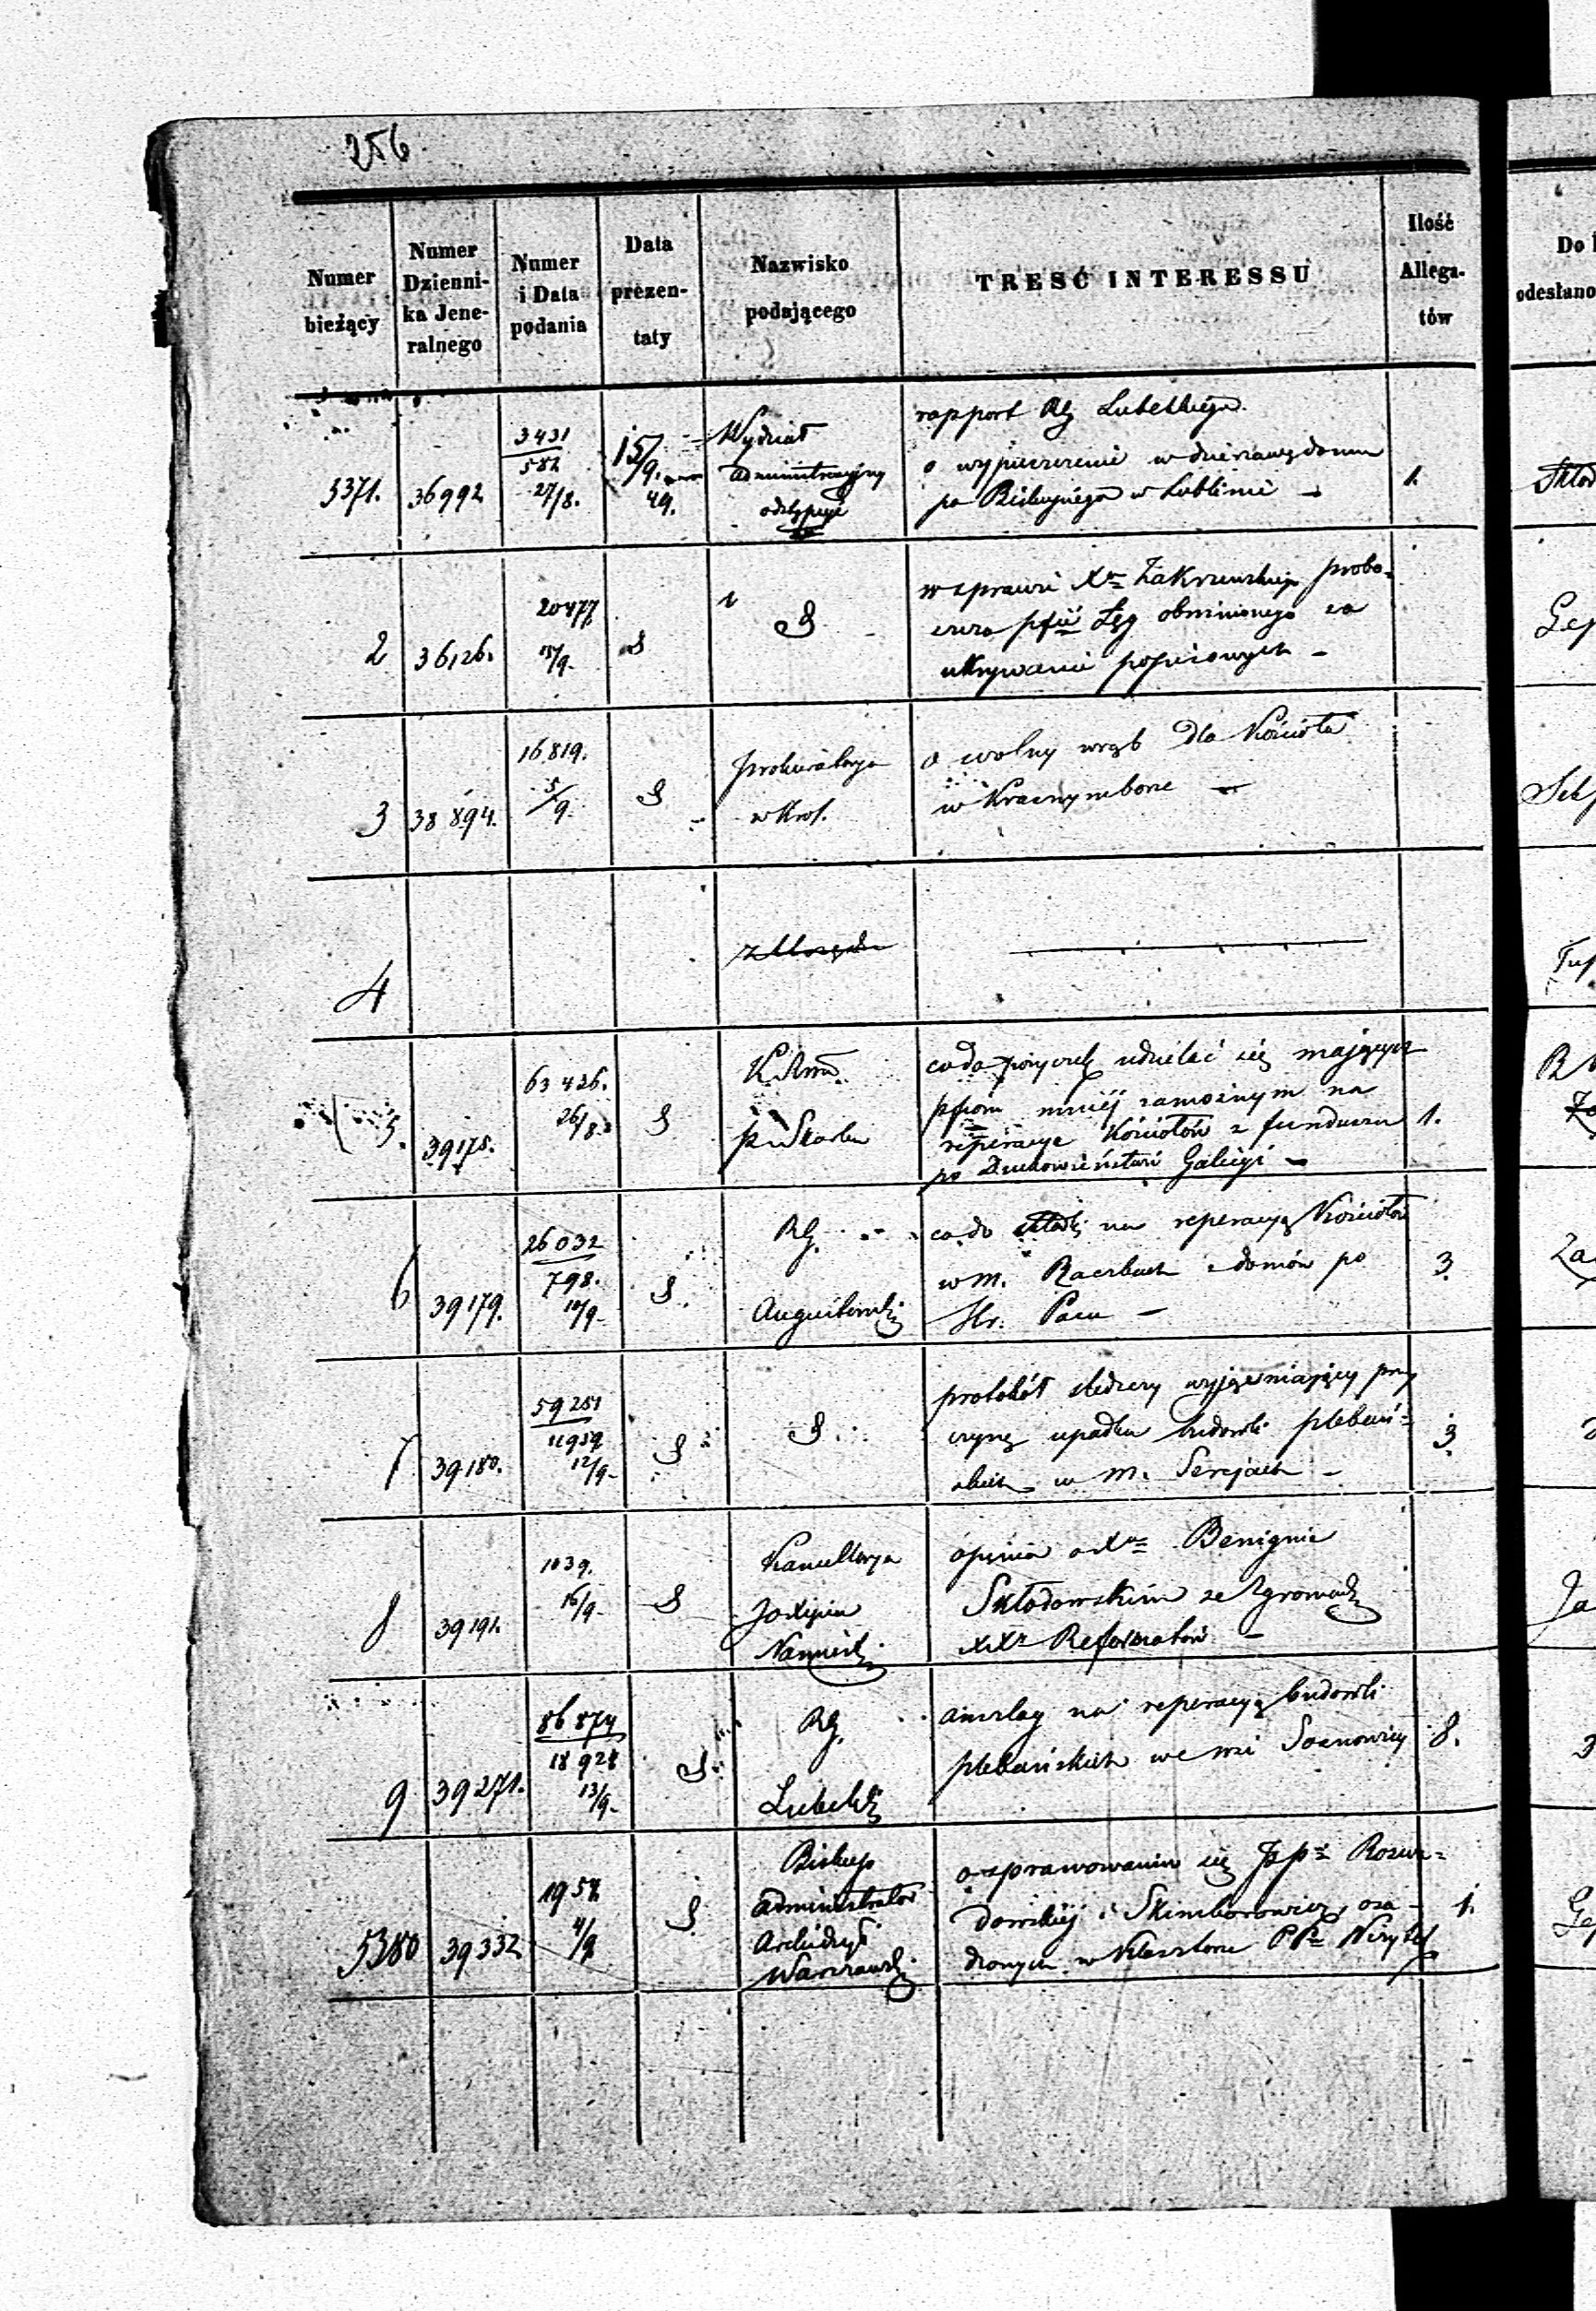 256
Numer bieżący
Numer Dziennika Jeneralnego
Numer i Data podania
Data prezentaty
Nazwisko podającego
TREŚĆ INTERESSU
Ilość Allegatów
Do
odesłano
5371. 36992 3431/582 27/8. 15/9. 49. Wydział
administracyjny
odstępuje
rapport RG Lubelskiego
o wypuszczenie w dzierżawę domu
po w Lublinie – 1.
2 36,126. 20477 15/9.
w sprawie Xa Zakrzewskiego probo-
szcza pfii Łęg obwinionego za
ukrywanie popisowych –
Gep
3 38894. 16819. 5/9. Prokuratorya
w Król.
o wolny wrąb dla Kościoła
w Krasnymborze –
4
5. 39175. 63426. 26/8. K.
P. i Skarbu
co do pożyczek udzielać się mających
pfiom mniej zamożnym na
reperacye Kościołów z funduszu
po Duchowieństwie Galicyi – 1.
6 39179. 26032/798. 10/9. RG.
Augustowski
co do składki na reperacyą Kościoła
w m. Raczkach i domów po
Hr. Pacu – 3.
7 39180. 59251/11959 12/9.
protokół śledczy wyjaśniający przy
czynę upadku budowli plebań=
skich w m. Serejach – 3.
8 39191. 1039. 16/9. Kancellarya
JOXięcia
Namiest.
opinia o Xu Benignie
Skłodowskim ze Zgromadz
XXy Reformatów –
Ja
9 39271. 86874/18928 13/9. RG.
Lubelski
anszlag na reperacyą budowli
plebańskich we wsi Sosnowicy 8.
5380 39332 1957 4/9 Biskup
Administrator
Archidyec
Warszawski
o sprawowaniu się Józfy Rozwa=
dowskiéj i Skimborowicz, osa-
dzonych w Klasztorze PP Wizytek 1.
Gep